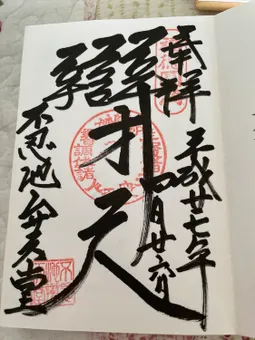 奉拝 平成廿七年
四月廿六日
辯才天
不忍池弁天堂